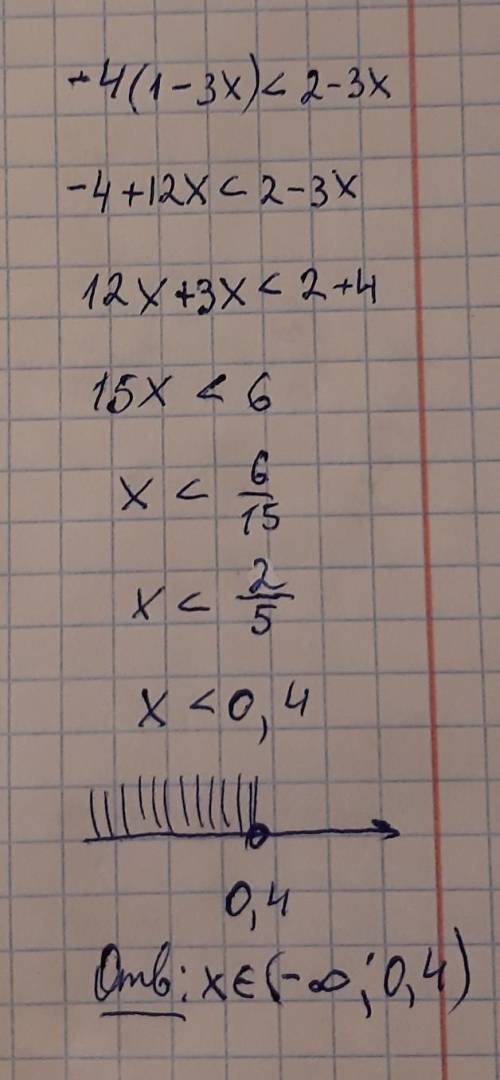 -4(1-3x)<2-3x
-4+12x<2-3x
12x+3x<2+4
15x<6
x<6/15
x<2/5
x<0,4
0,4
Отв: x∈(-∞;0,4)